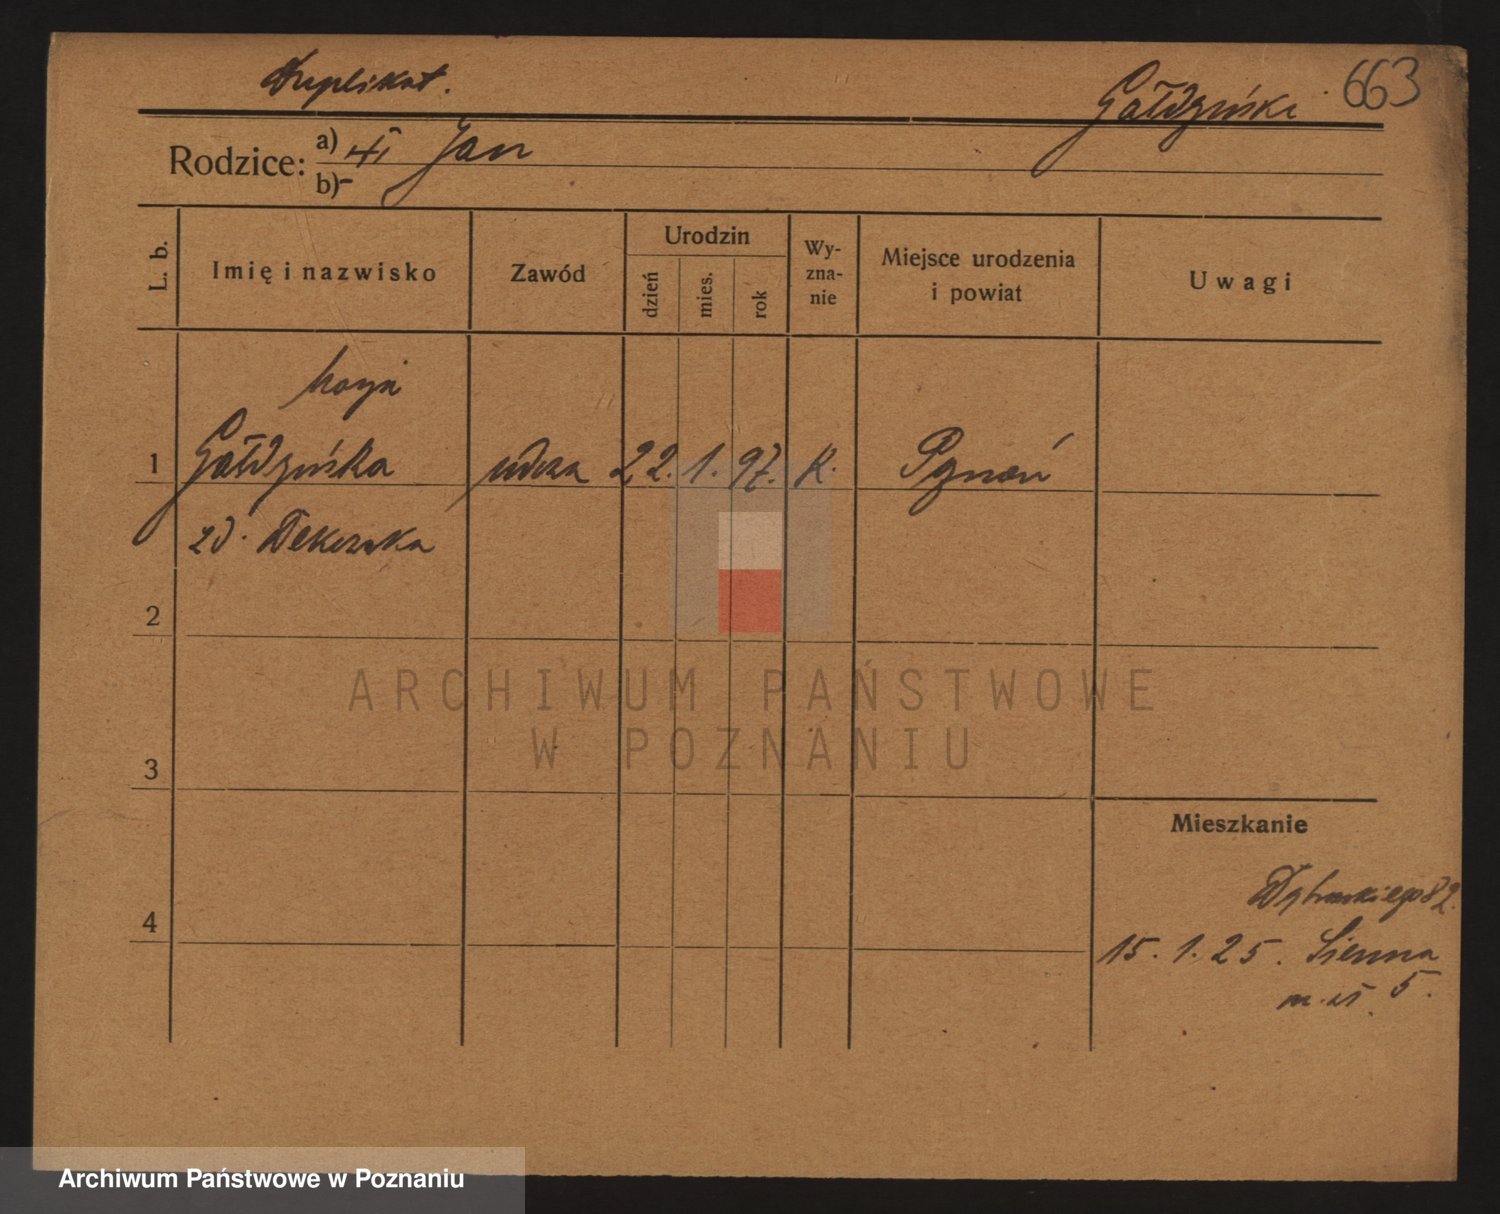 Duplikat.
Gałdyńska 663
Rodzice: a) Jan
b) -
L. b. Imię i nazwisko Zawód Urodzin dzień mies. rok Wy-zna-nie Miejsce urodzenia i powiat Uwagi
1 Gałdyńska 22. 1. 97. k.
zd.
2
3
4
Mieszkanie
Dąbrowskiego 82.
15. 1. 25. Sienna
5.
ARCHIWUM PAŃSTWOWE
W POZNANIU
Archiwum Państwowe w Poznaniu